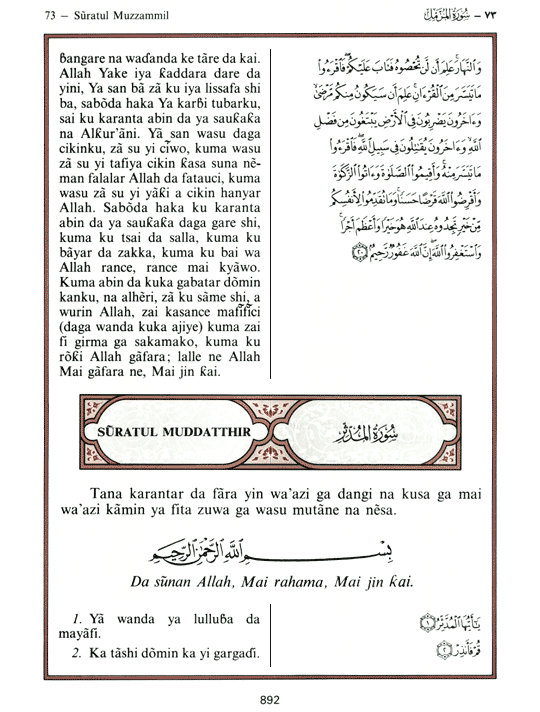 73 — Sūratul Muzzammil
سُورَةُ المُزَّمِّل — ٧٣
ɓangare na waɗanda ke tāre da kai.
Allah Yake iya ƙaddara dare da
yini, Ya san bā zā ku iya lissafa shi
ba, sabōda haka Ya karɓi tubarku,
sai ku karanta abin da ya sauƙaƙa
na Alƙur'āni. Yā san wasu daga
cikinku, zā su yi cīwo, kuma wasu
zā su yi tafiya cikin ƙasa suna nē-
man falalar Allah da fatauci, kuma
wasu zā su yi yāƙi a cikin hanyar
Allah. Sabōda haka ku karanta
abin da ya sauƙaƙa daga gare shi,
kuma ku tsai da salla, kuma ku
bāyar da zakka, kuma ku bai wa
Allah rance, rance mai kyāwo.
Kuma abin da kuka gabatar dōmin
kanku, na alhēri, zā ku sāme shi, a
wurin Allah, zai kasance mafīfīci
(daga wanda kuka ajiye) kuma zai
fi girma ga sakamako, kuma ku
rōƙi Allah gāfara; lalle ne Allah
Mai gāfara ne, Mai jin ƙai.
وَالنَّهَارَ عَلِمَ أَن لَّن تُحْصُوهُ فَتَابَ عَلَيْكُمْ فَاقْرَءُوا
مَا تَيَسَّرَ مِنَ الْقُرْءَانِ عَلِمَ أَن سَيَكُونُ مِنكُم مَّرْضَىٰ
وَءَاخَرُونَ يَضْرِبُونَ فِي الْأَرْضِ يَبْتَغُونَ مِن فَضْلِ
اللَّهِ وَءَاخَرُونَ يُقَاتِلُونَ فِي سَبِيلِ اللَّهِ فَاقْرَءُوا
مَا تَيَسَّرَ مِنْهُ وَأَقِيمُوا الصَّلَوٰةَ وَءَاتُوا الزَّكَوٰةَ
وَأَقْرِضُوا اللَّهَ قَرْضًا حَسَنًا وَمَا تُقَدِّمُوا لِأَنفُسِكُم
مِّنْ خَيْرٍ تَجِدُوهُ عِندَ اللَّهِ هُوَ خَيْرًا وَأَعْظَمَ أَجْرًا
وَاسْتَغْفِرُوا اللَّهَ إِنَّ اللَّهَ غَفُورٌ رَّحِيمٌ ٢٠
SŪRATUL MUDDATTHIR
سُورَةُ المُدَّثِّر
Tana karantar da fāra yin wa'azi ga dangi na kusa ga mai
wa'azi kāmin ya fita zuwa ga wasu mutāne na nēsa.
بِسْمِ اللَّهِ الرَّحْمَٰنِ الرَّحِيمِ
Da sūnan Allah, Mai rahama, Mai jin ƙai.
1. Yā wanda ya lulluɓa da
mayāfi.
2. Ka tāshi dōmin ka yi gargaɗi.
يَٰأَيُّهَا الْمُدَّثِّرُ ١
قُمْ فَأَنذِرْ ٢
892